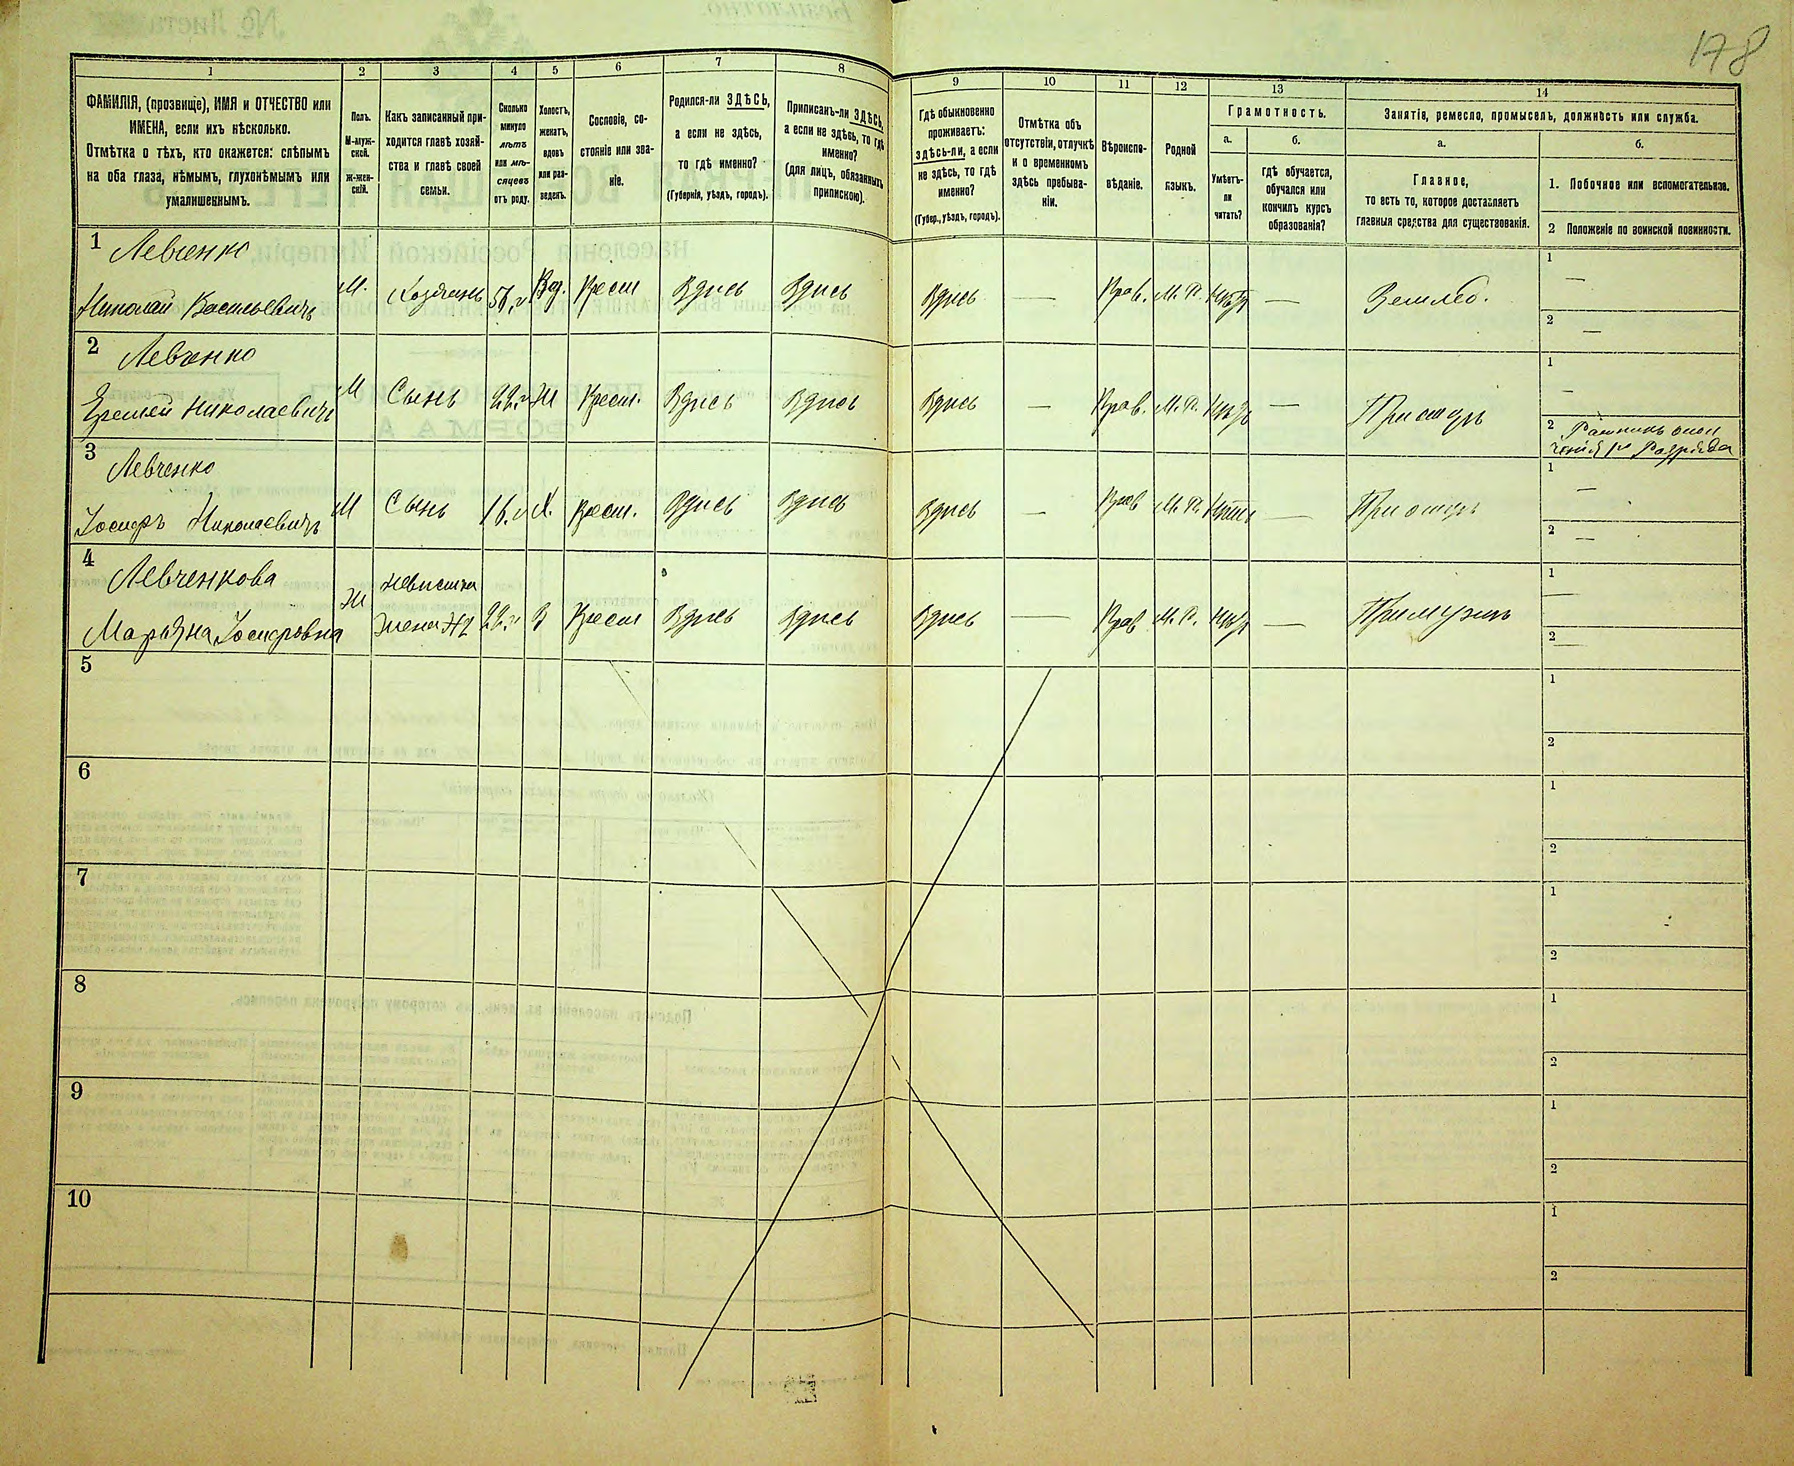 178
1
2
3
4
5
6
7
8
ФАМИЛІЯ, (прозвище), ИМЯ и ОТЧЕСТВО или
ИМЕНА, если ихъ нѣсколько.
Отмѣтка о тѣхъ, кто окажется: слѣпымъ
на оба глаза, нѣмымъ, глухонѣмымъ или
умалишеннымъ.
Полъ.
М-муж-
ской.
Ж-жен-
скій.
Какъ записанный при-
ходится главѣ хозяй-
ства и главѣ своей
семьи.
Сколько
минуло
лѣтъ
или мѣ-
сяцевъ
отъ роду.
Холостъ,
женатъ,
вдовъ
или раз-
веденъ.
Сословіе, со-
стояніе или зва-
ніе.
Родился-ли ЗДѢСЬ,
а если не здѣсь,
то гдѣ именно?
(Губернія, уѣздъ, городъ).
Приписанъ-ли ЗДѢСЬ,
а если не здѣсь, то гдѣ
именно?
(для лицъ, обязанныхъ
припискою).
9
10
11
12
13
14
Гдѣ обыкновенно
проживаетъ:
здѣсь-ли, а если
не здѣсь, то гдѣ
именно?
(Губер., уѣздъ, городъ).
Отмѣтка объ
отсутствіи, отлучкѣ
и о временномъ
здѣсь пребыва-
ніи.
Вѣроиспо-
вѣданіе.
Родной
языкъ.
Грамотность.
а.
б.
Умѣетъ-
ли
читать?
Гдѣ обучается,
обучался или
кончилъ курсъ
образованія?
Занятіе, ремесло, промыселъ, должность или служба.
а.
б.
Главное,
то есть то, которое доставляетъ
главныя средства для существованія.
1. Побочное или вспомогательное.
2 Положеніе по воинской повинности.
1 Левченко
Николай Васильевичъ М. Хозяинъ Вд. Крест Здѣсь Здѣсь Здѣсь — Прав. М. Р. — Землед.
1 —
2 —
2 Левченко
Еремей Николаевичъ М Сынъ 22. Ж Крест. Здѣсь Здѣсь Здѣсь — Прав. М. Р. — При отцѣ
1 —
2 Ратникъ опол
ченія Разряда
3 Левченко
Іосифъ Николаевичъ М Сынъ 16. Х. Крест. Здѣсь Здѣсь Здѣсь — Прав М. Р. — При отцѣ
1 —
2 —
4 Левченкова
Марьяна Іосифовна Ж Невѣстка
Жена №2 22. З Крест Здѣсь Здѣсь Здѣсь — Прав М. Р. — При мужѣ
1 —
2 —
5
1
2
6
1
2
7
1
2
8
1
2
9
1
2
10
1
2